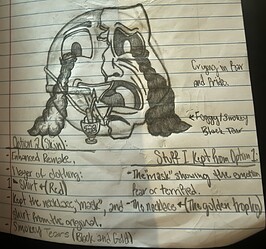 Crying, in Fear
and Pride.
← Foggy/Smokey
Black Tear
Option 2 Skin:
- Enhanced Remale.
- 1 layer of clothing:
1 - Shirt (Red)
- Kept the necklace, "mask", and
shirt from the original.
- Smokey Tears (Black and Gold)
Stuff I Kept from Option 1:
- The "mask" showing the emotion
fear or terrified.
- The necklace (The golden trophy)